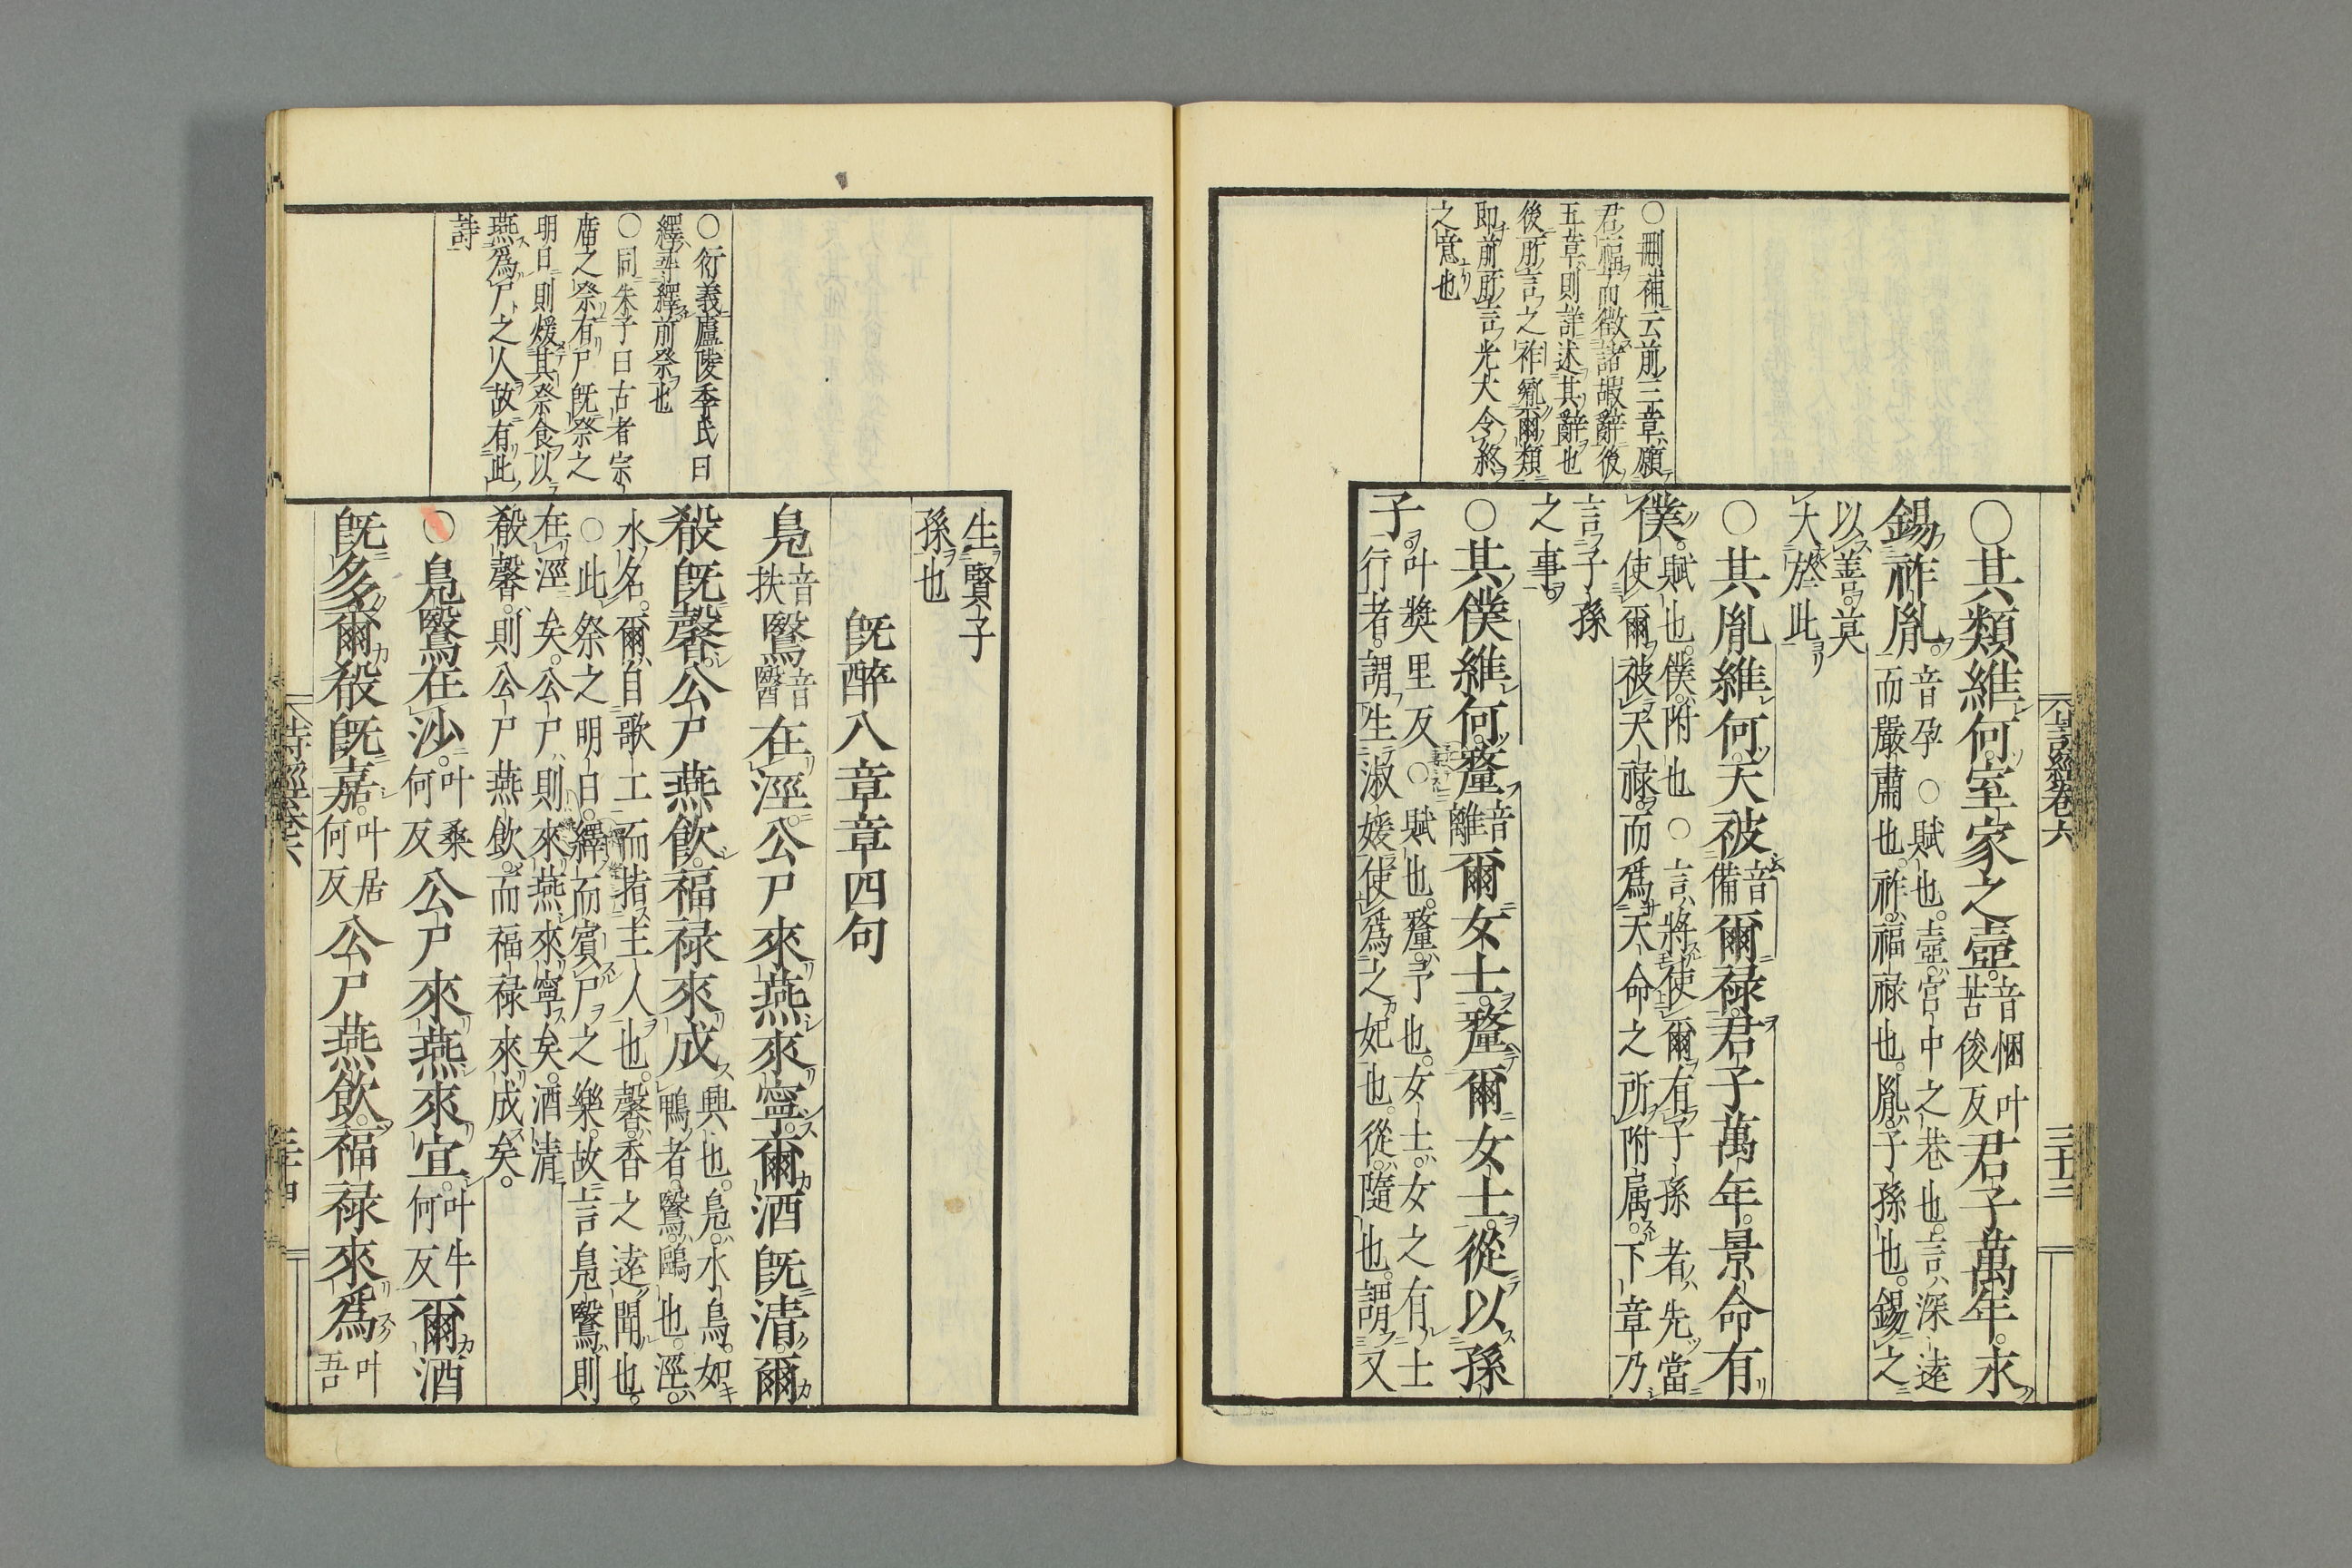 ○刪補云前三章願
君福而徴諸嘏辭後
五章則詳述其辭也
後所言之祚胤爾類
即前所言光大令終
之意也
○其類維何室家之壼音悃叶苦俊反君子萬年永
錫祚胤音孕○賦也壼宮中之巷也言深遠
而嚴肅也祚福祿也胤子孫也錫之
以善莫
大於此
○其胤維何天被音備爾祿君子萬年景命有
僕賦也僕附也○言將使爾有子孫者先當
使爾被天祿而爲天命之所附属下章乃
言子孫
之事
○其僕維何釐音離爾女士釐爾女士從以孫
子叶奬里反○賦也釐予也女士女之有士
行者謂生淑媛使爲之妃也從隨也謂又
詩經卷六
三十三
○衍義廬陵李氏曰
繹尋繹前祭也
○同朱子曰古者宗
廟之祭有尸既祭之
明日則煖其祭食以
燕爲尸之人故有此
詩
生賢子
孫也
既醉八章章四句
鳧音扶鷖音醫在涇公尸來燕來寧爾酒既清爾
殽既馨公尸燕飲福祿來成興也鳧水鳥如
鴨者鷖鷗也涇
水名爾自歌工而指主人也馨香之遠聞也
○此祭之明日繹而賓尸之樂故言鳧鷖則
在涇矣公尸則來燕來寧矣酒清
殽馨則公尸燕飲而福祿來成矣
○鳧鷖在沙叶桑何反公尸來燕來宜叶牛何反爾酒
既多爾殽既嘉叶居何反公尸燕飲福祿來爲叶吾
詩經卷六
三十四